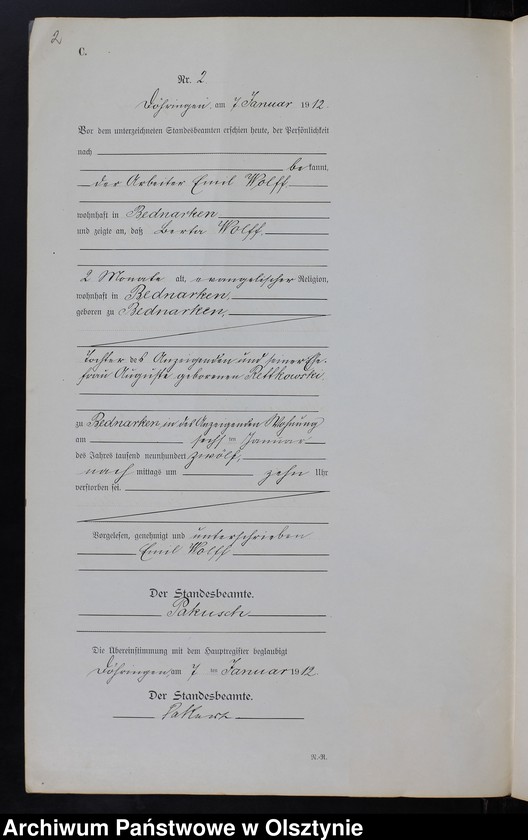 2
C.
Nr. 2
Döhringen, am 7 Januar 1912.
Vor dem unterzeichneten Standesbeamten erschien heute, der Persönlichkeit
nach
be kannt,
der Arbeiter Emil Wolff
wohnhaft in Bednarken
und zeigte an, daß Berta Wolff
2 Monate alt, evangelischer Religion,
wohnhaft in Bednarken,
geboren zu Bednarken,
Tochter des Anzeigenden und seiner Ehe-
frau Auguste geborenen Rettkowski
zu Bednarken, in des Anzeigenden Wohnung
am sechs ten Januar
des Jahres tausend neunhundert zwölf,
nach mittags um zehn Uhr
verstorben sei.
Vorgelesen, genehmigt und unterschrieben
Emil Wolff
Der Standesbeamte.
Pakusch
Die Übereinstimmung mit dem Hauptregister beglaubigt
Döhringen, am 7 ten Januar 1912
Der Standesbeamte.
N.-R.
Archiwum Państwowe w Olsztynie